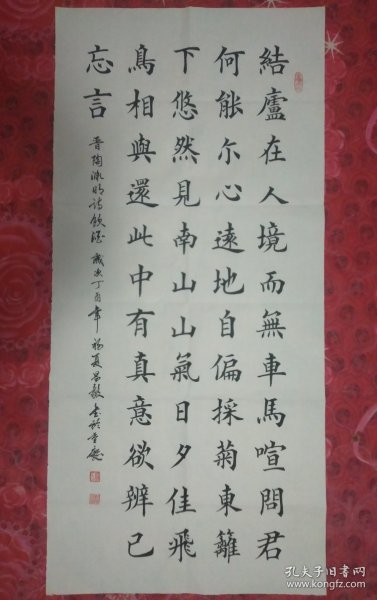 結廬在人境而無車馬喧問君
何能尔心遠地自偏採菊東籬
下悠然見南山山氣日夕佳飛
鳥相與還此中有真意欲辨已
忘言
晋陶淵明詩飲酒 歲次丁酉年 初夏
孔夫子旧书网
www.kongfz.com